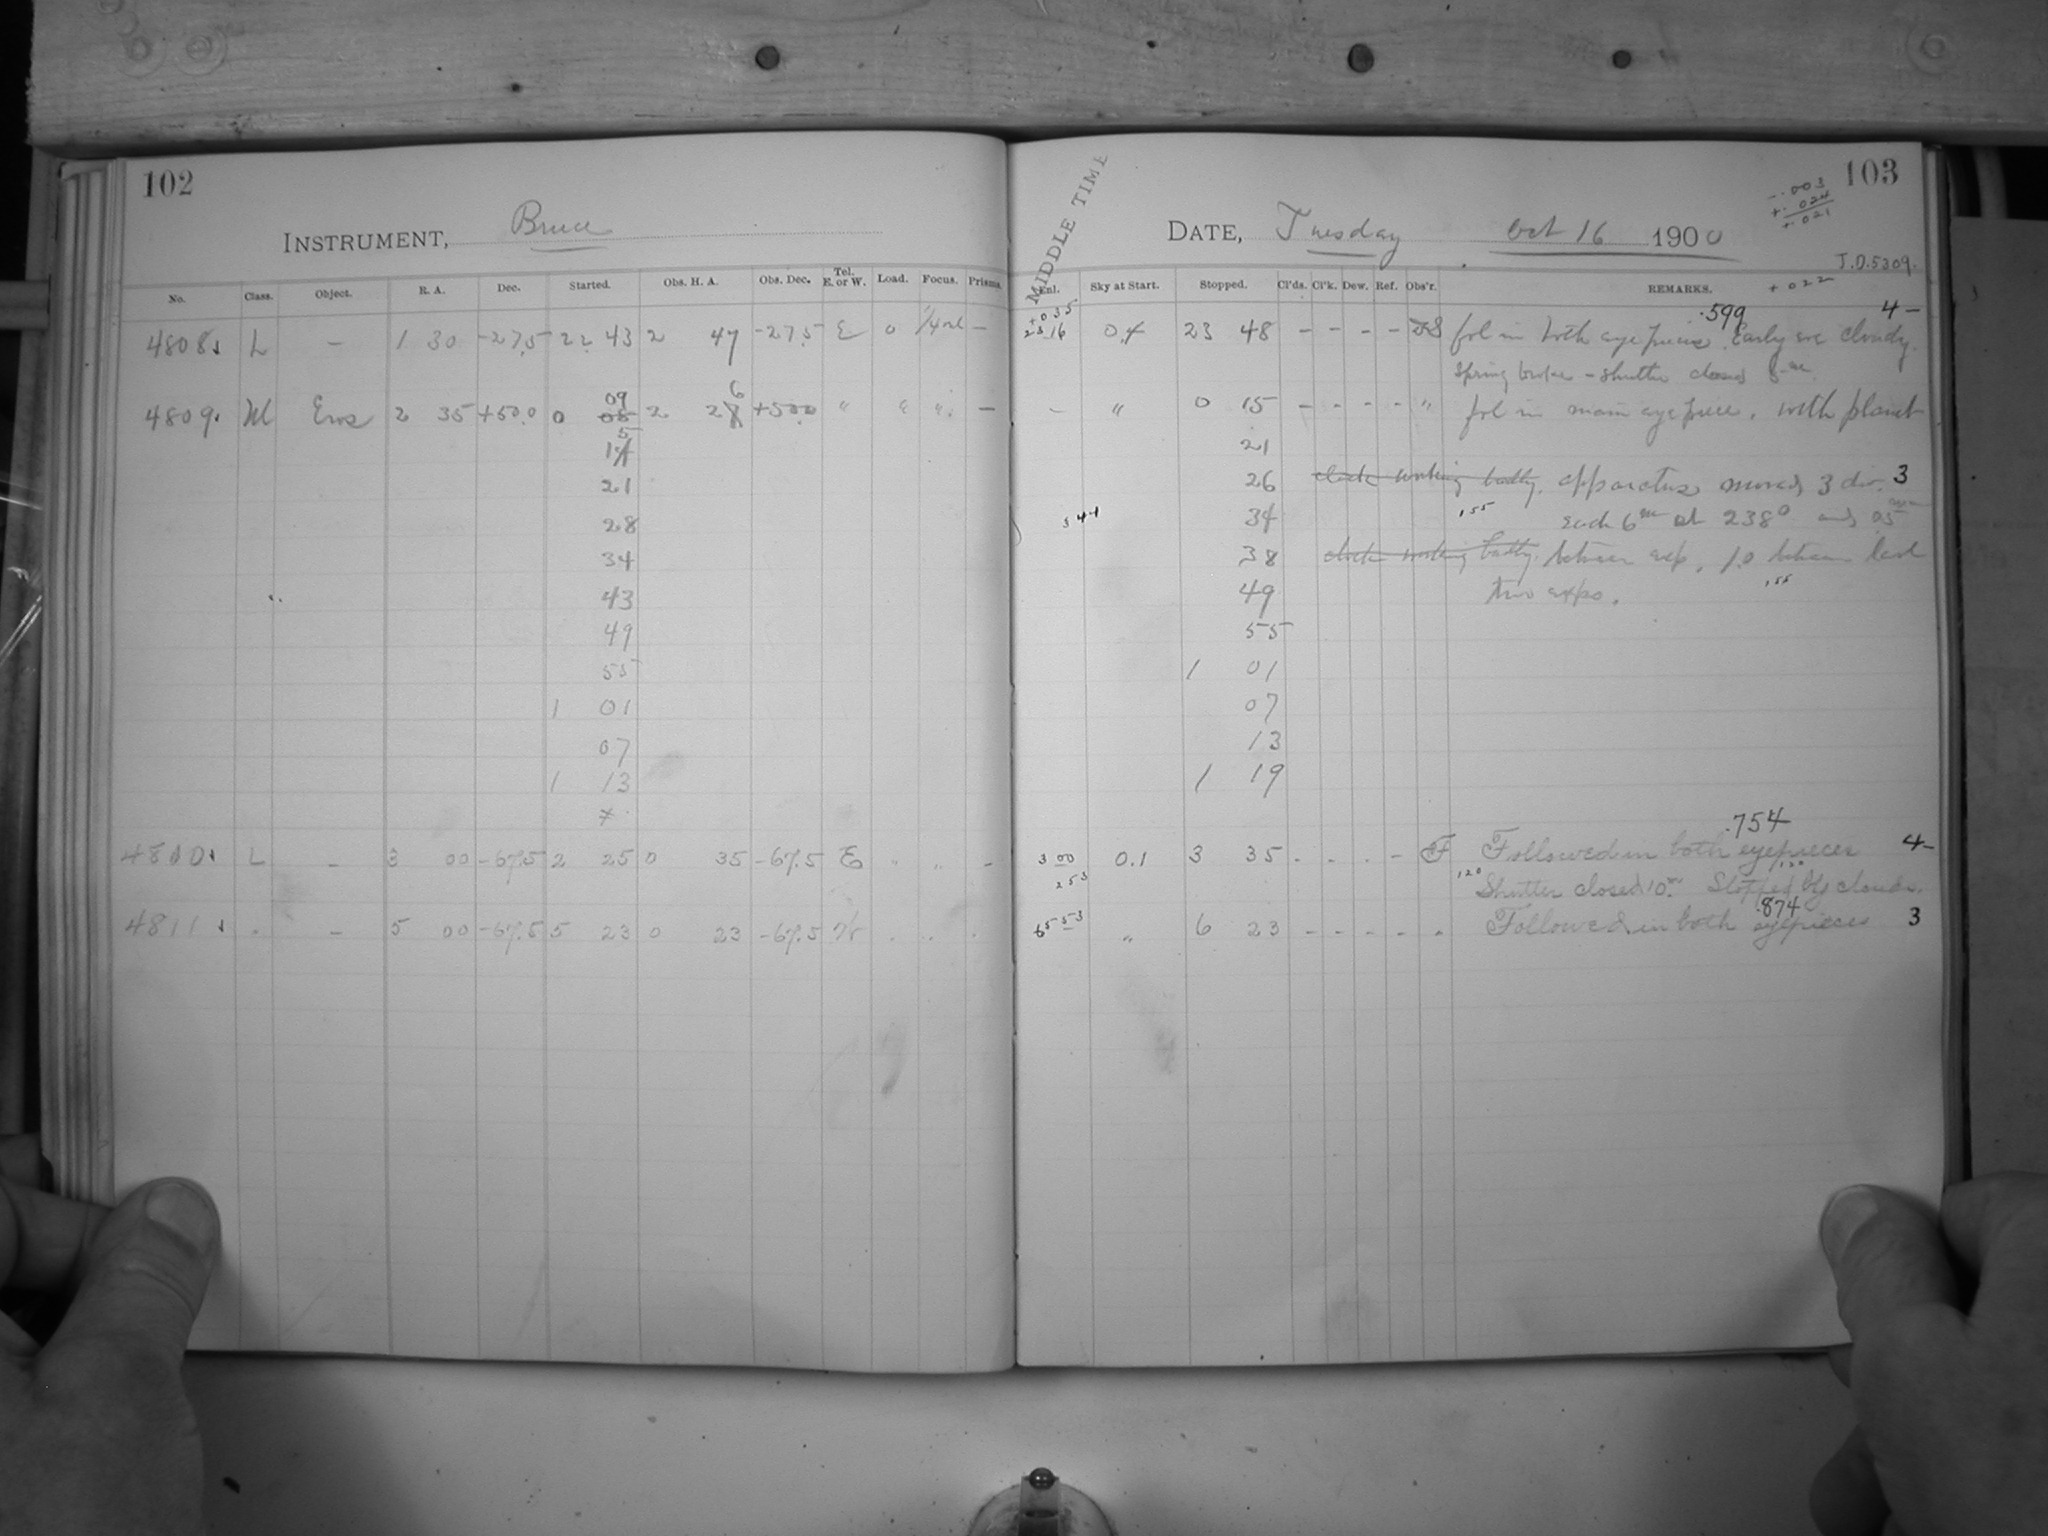 102
INSTRUMENT, Bruce
No. Class. Object. R. A. Dec. Started. Obs. H. A. Obs. Dec. Tel. E. or W. Load. Focus. Prisms.
4808 L – 1 30 -27.5 22 43 2 47 -27.5 E 0 –
4809. M Eros 2 35 +50.0 0 08 09 2 28 6 +50.0 " " –
14 5
21
28
34
43
49
55
1 01
07
1 13
4810 L – 3 00 -67.5 2 25 0 35 -67.5 E " " –
4811 . – 5 00 -67.5 5 23 0 23 -67.5
MIDDLE TIME
103
-.003
+.024
+.021
DATE, Tuesday Oct 16 1900
J.D.5309.
Enl. Sky at Start. Stopped. Cl'ds. Cl'k. Dew. Ref. Obs'r. REMARKS. +022
+035
.599 4-
23 16 0.4 23 48 – – – – fol in both eye pieces. Early eve cloudy.
Spring broke – shutter closed 8m
– " 0 15 – – – – " fol in main eye piece. with planet
21
26 clock working badly. apparatus moved 3 div. 3
.155
344 34 each 6m at 238° and
38 clock working badly. between exp. 1.0 between last
.155
49 two exps.
55
1 01
07
13
1 19
.754
3 00 0.1 3 35 . . . – F Followed in both eyepieces 4-
253 .120 Shutter closed 10m. Stopped by clouds.
.874
5 53 " 6 23 – – – – . Followed in both eyepieces 3